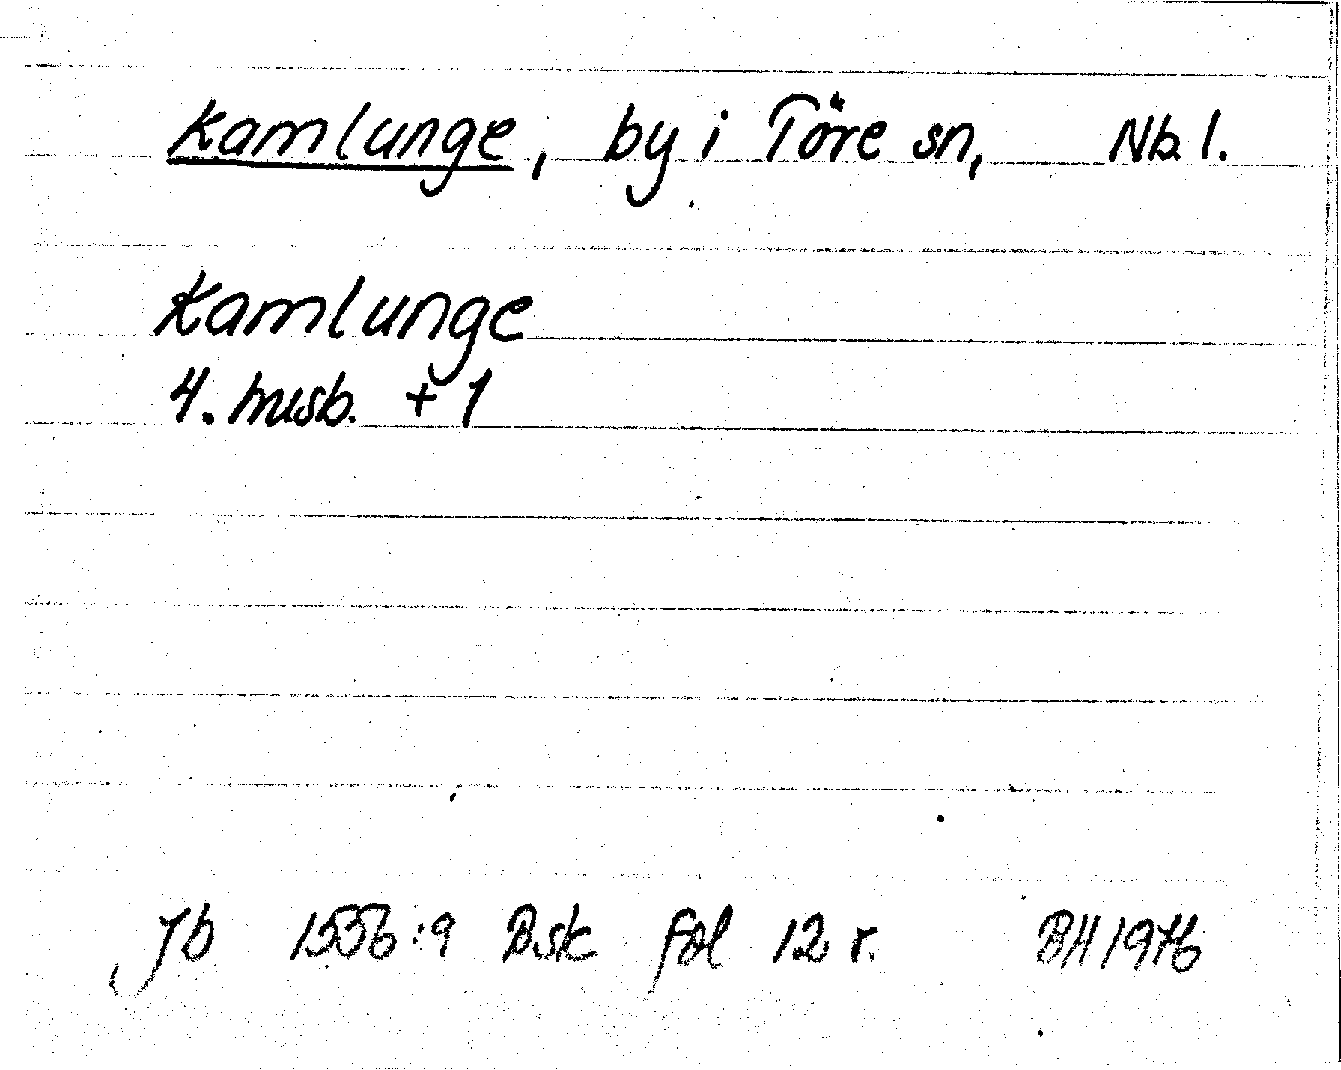 Kamlunge, by i Töre sn, Nb. l.
Kamlunge
4. husb. + 1
Jb 1556:9 Bsk fol 12 r. BH 1976